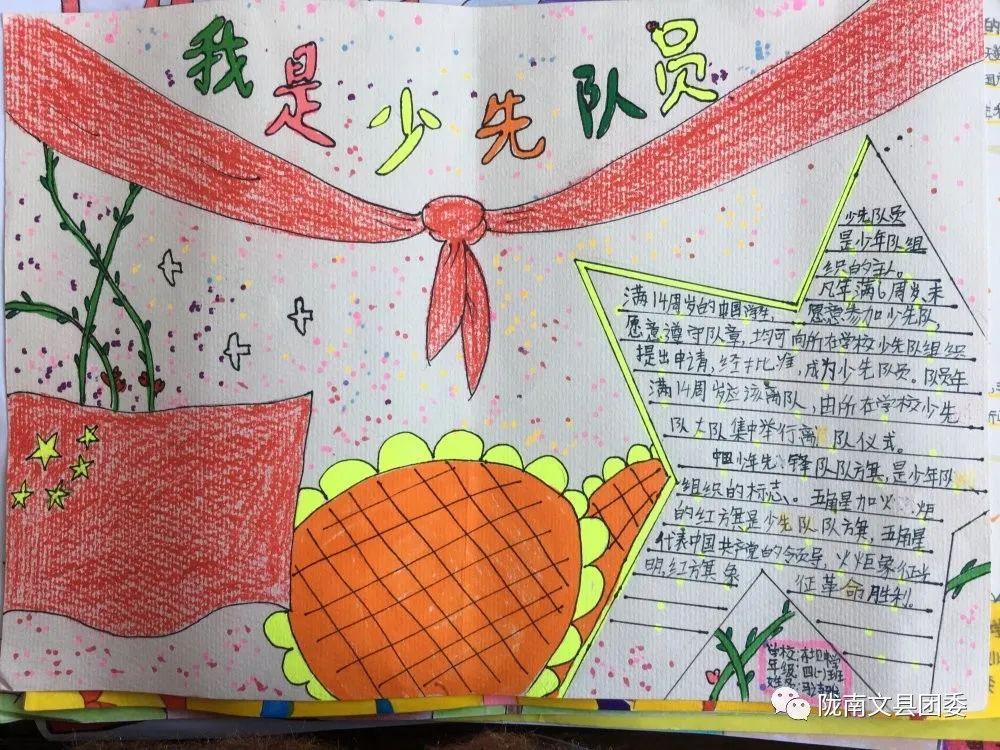 我是少先队员
少先队员
是少年队组
织的主人。
凡年满6周岁,未
满14周岁的中国学生,愿意参加少先队,
愿意遵守队章,均可向所在学校少先队组织
提出申请,经批准,成为少先队员。队员年
满14周岁应该离队,由所在学校少先
队大队集中举行离队仪式。
中国少年先锋队队旗,是少年队
组织的标志。五角星加火炬
的红方旗是少先队队旗,五角星
代表中国共产党的领导,火炬象征光
明,红方旗象
征革命胜利。
学校:
年级:四(一)班
姓名:
陇南文县团委